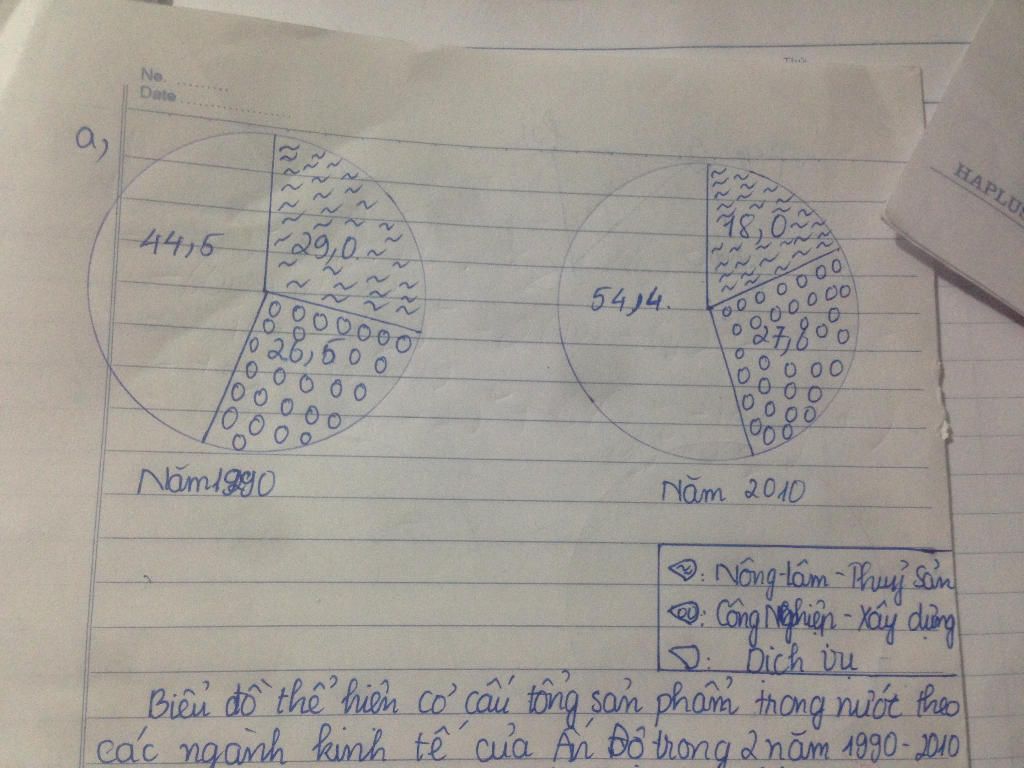 No. ........
Date ................
HAPLUS
a,
44,5
29,0
26,5
Năm 1990
18,0
54,4
27,6
Năm 2010
≈: Nông-Lâm-Thuỷ Sản
00: Công Nghiệp - Xây dựng
: Dịch vụ
Biểu đồ thể hiện cơ cấu tổng sản phẩm trong nước theo
các ngành kinh tế của Ấn Độ trong 2 năm 1990-2010